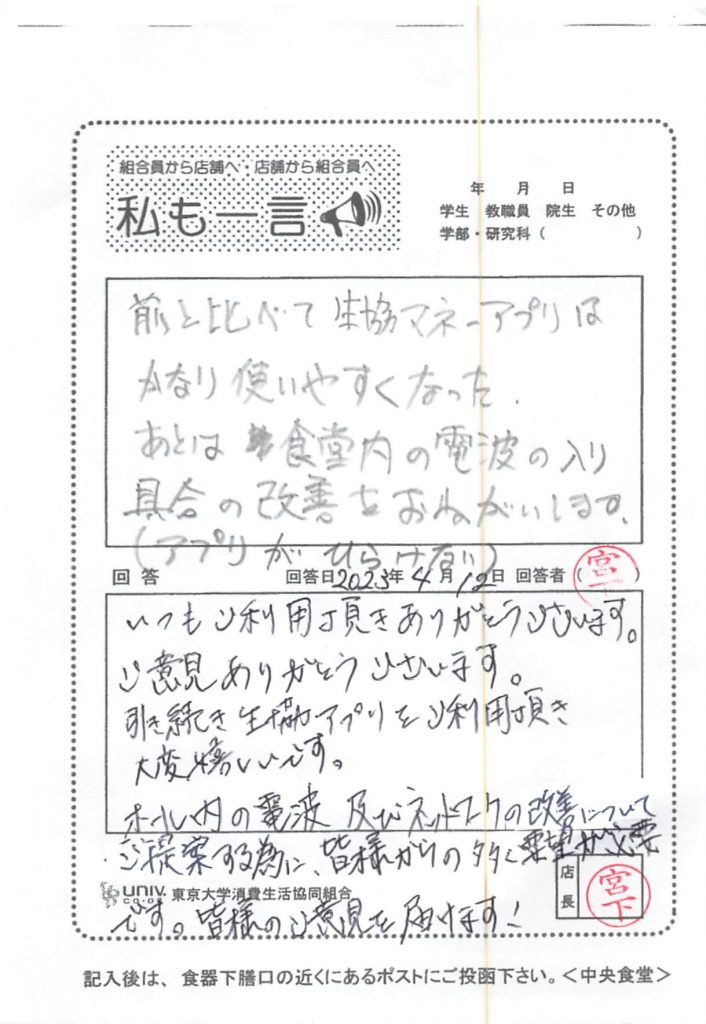 組合員から店舗へ・店舗から組合員へ
私も一言
年 月 日
学生 教職員 院生 その他
学部・研究科（ ）
前と比べて生協マネーアプリは
かなり使いやすくなった.
あとは 食堂内の電波の入り
具合の改善をおねがいします.
(アプリがひらけない)
回答 回答日2023年4月12日 回答者（宮下）
いつもご利用頂きありがとうございます。
ご意見ありがとうございます。
引き続き生協アプリをご利用頂き
大変嬉しいです。
ホール内の電波及びネットワークの改善について
ご提案する為に、皆様からの多く要望が必要
です。皆様のご意見を届けます!
UNIV. CO-OP 東京大学消費生活協同組合
店長 宮下
記入後は、食器下膳口の近くにあるポストにご投函下さい。＜中央食堂＞